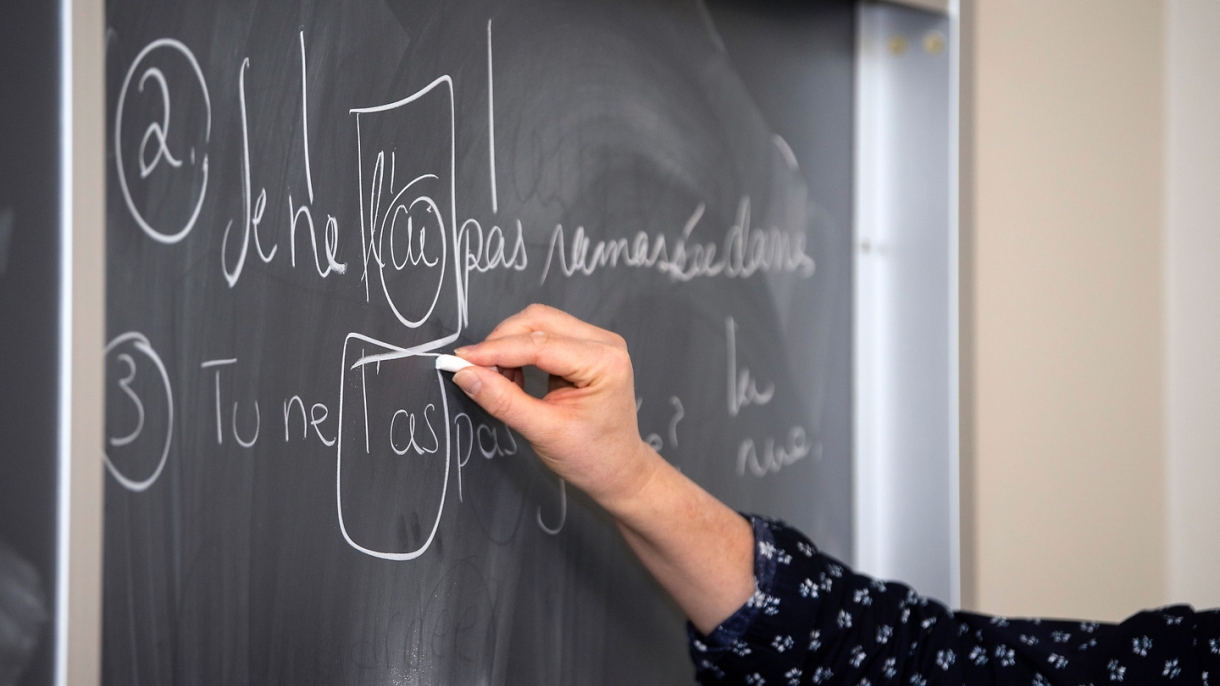 2. Je ne l'ai pas ramassée dans
la
rue.
3 Tu ne l'as pas ?